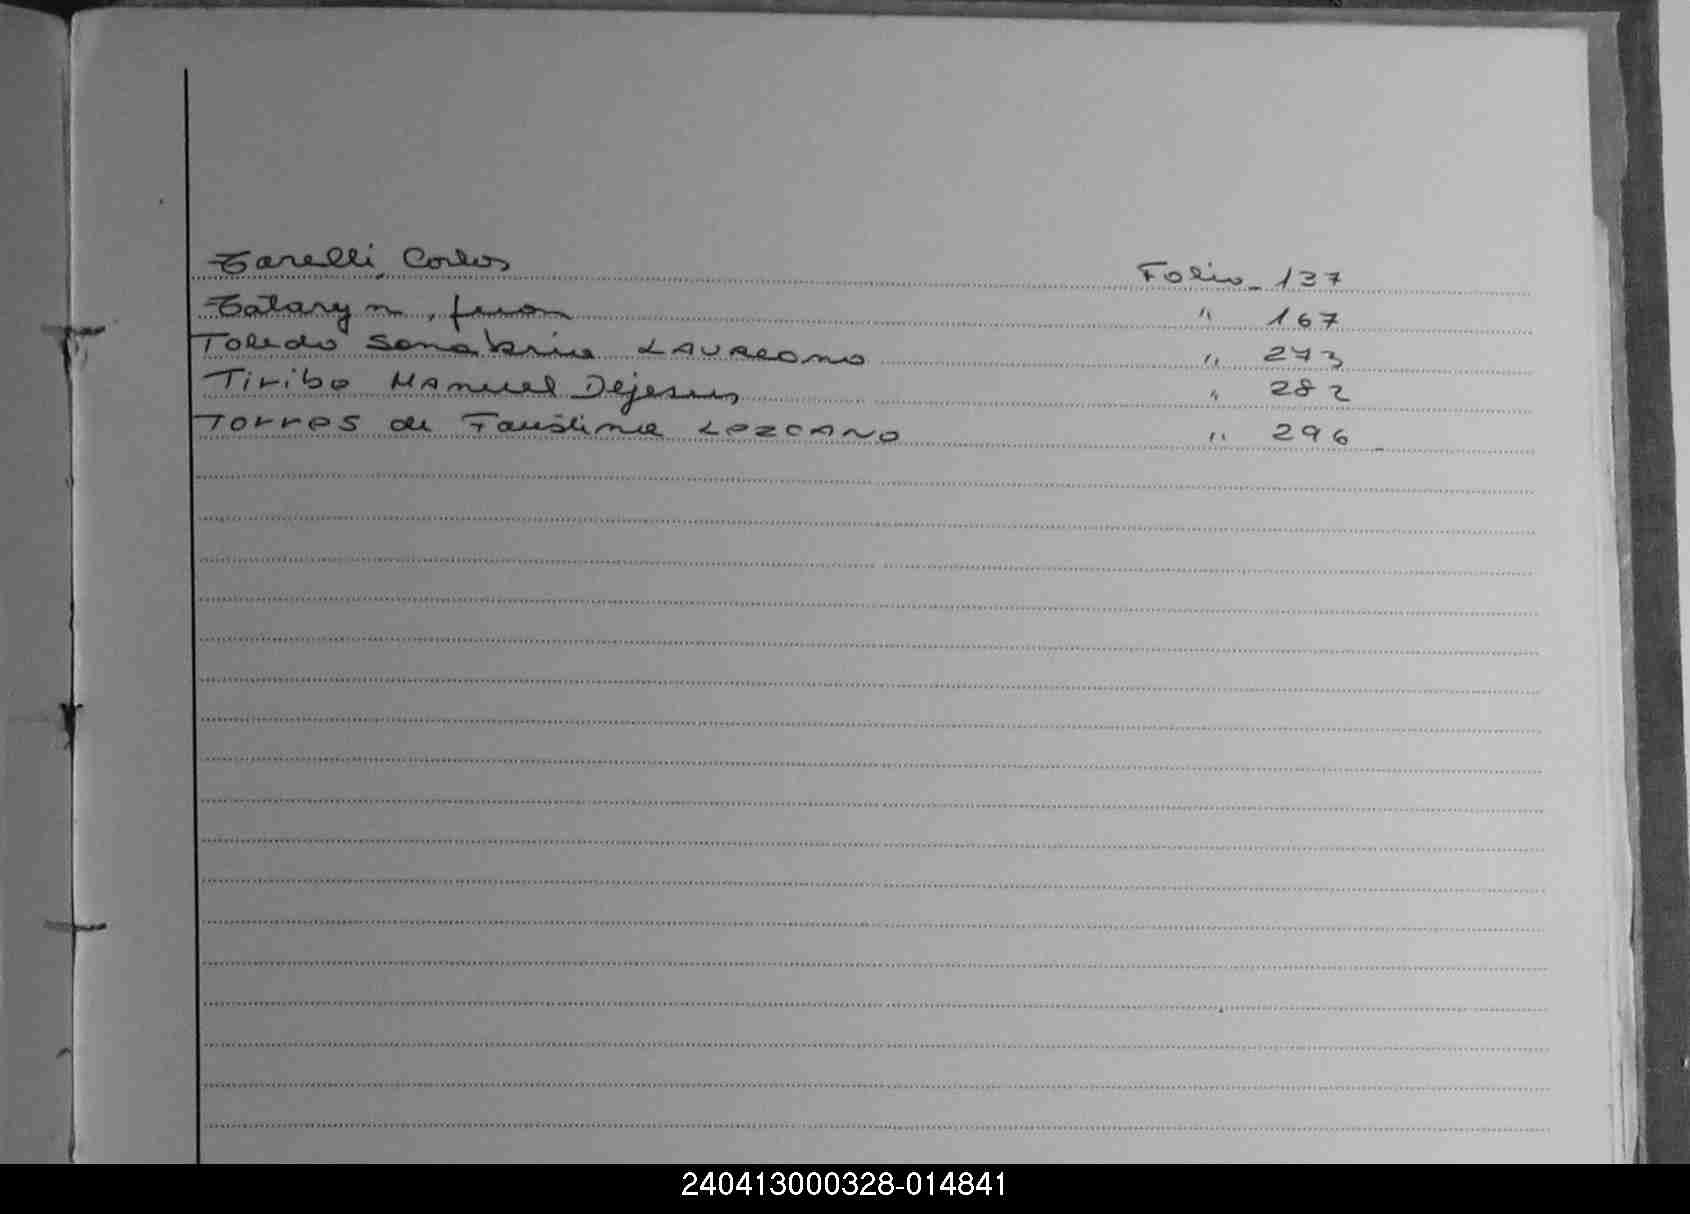 Tarelli, Carlos Folio - 137
Tatary n, Juan " 167
Toledo Sanabria LAUREANO " 273
Tiribo Manuel Dejesus " 282
Torres de Faustina LEZCANO " 296
240413000328-014841